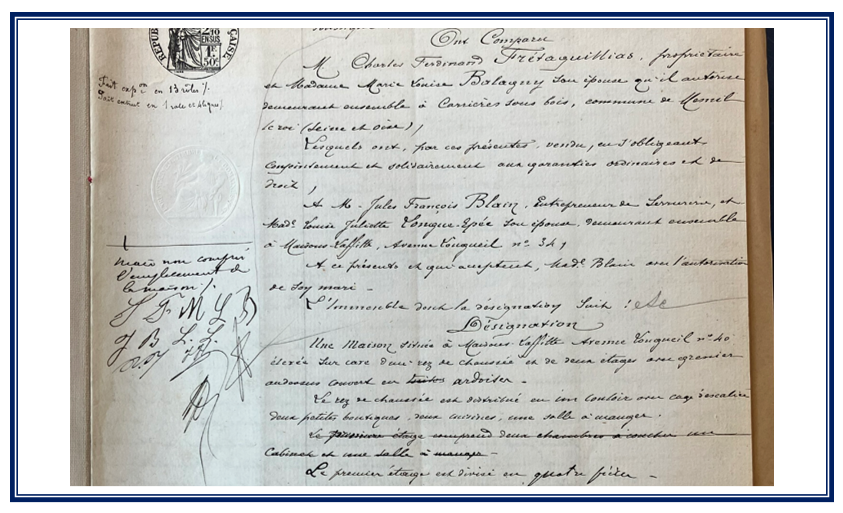 RÉPUB
ÇAISE
2/10
EN SUS
1F
50c
Fait exp.on en 13 rôles /.
Ont Comparu
M Charles Ferdinand Frétaquillias, propriétaire
et Madame Marie Louise Balagny son épouse qu'il autorise
demeurant ensemble à Carrières sous bois, commune de Mesnil
le roi (Seine et Oise),
Lesquels ont, par ces présentes, vendu, en s'obligeant
conjointement et solidairement aux garanties ordinaires et de
droit,
A M. Jules François Blain, Entrepreneur de Serrurerie, et
Made. Louise Juliette Longue-Epée son épouse, demeurant ensemble
à Maisons-Laffitte, Avenue Longueil no. 34,
A ce présents et qui acceptent, Made. Blain avec l'autorisation
de son mari.
L'Immeuble dont la désignation suit :
Désignation
Une Maison située à Maisons-Laffitte Avenue Longueil no. 40
élevée sur cave d'un rez de chaussée et de deux étages avec grenier
au dessus couvert en ardoises.
Le rez de chaussée est distribué en un couloir avec cage d'escalier
deux petites boutiques, deux cuisines, une salle à manger.
Le premier étage comprend deux chambres à coucher un
Cabinet et une salle à manger
Le premier étage est divisé en quatre pièces
mais non compris
l'emplacement de
la maison /.
F M L B
J B L. L.